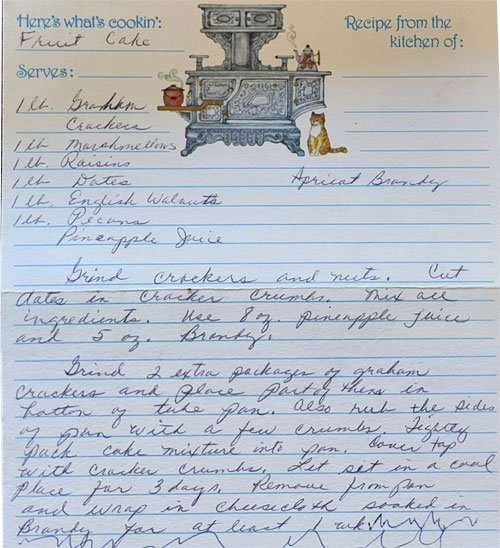 Here's what's cookin':
Fruit Cake
Recipe from the
kitchen of:
Serves:
1 lb. Graham
Crackers
1 lb Marshmellows
1 lb. Raisins
1 lb Dates
Apricot Brandy
1 lb. English Walnuts
1 lb. Pecans
Pineapple Juice
Grind crackers and nuts. Cut
dates in Cracker Crumbs. Mix all
ingredients. Use 8 oz. pineapple juice
and 5 oz. Brandy.
Grind 2 extra packages of graham
Crackers and place part of them in
botton of tube pan. Also rub the sides
of pan with a few crumbs. Tightly
pack cake mixture into pan. Cover top
with cracker crumbs. Let set in a cool
place for 3 days. Remove from pan
and wrap in cheesecloth soaked in
Brandy for at least 1 wk.